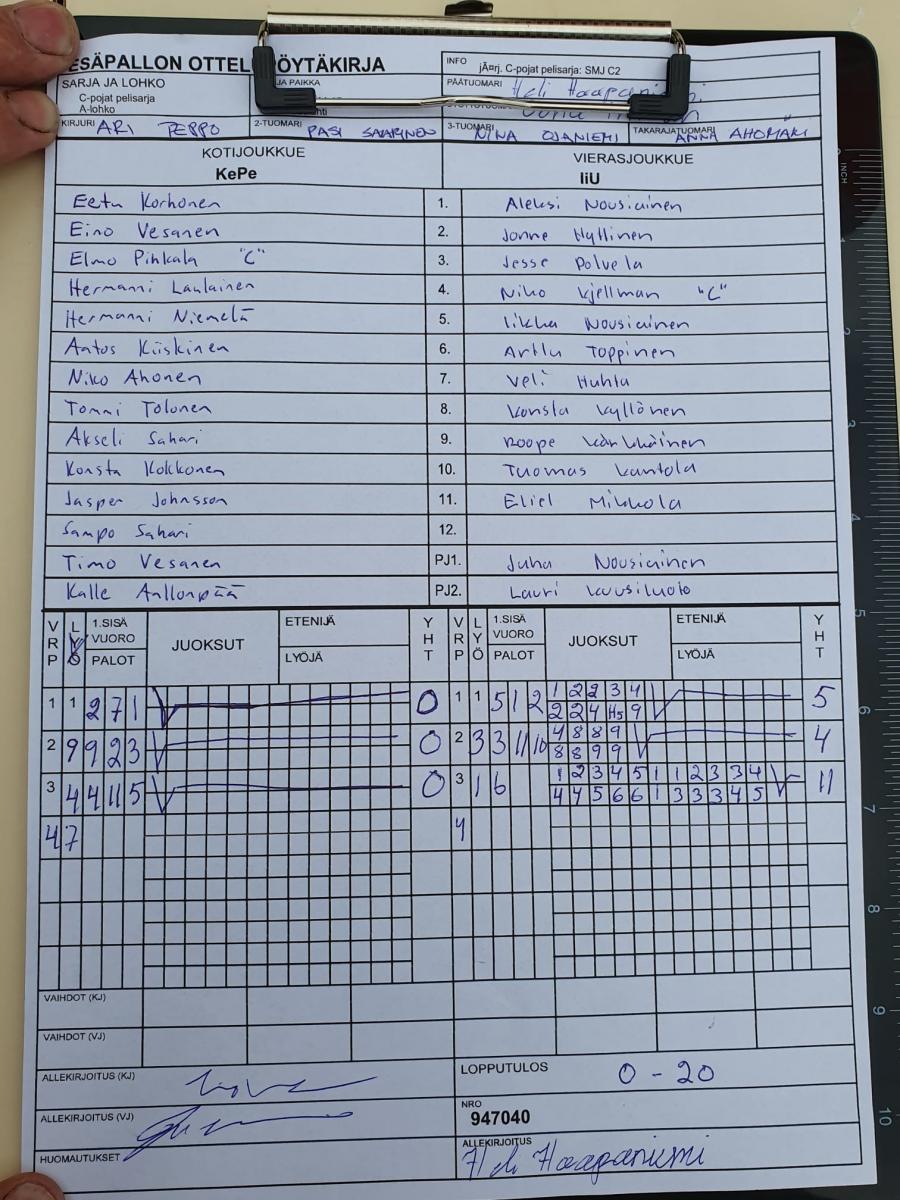 ESÄPALLON OTTEL ÖYTÄKIRJA
INFO jÃ¤rj. C-pojat pelisarja: SMJ C2
SARJA JA LOHKO
JA PAIKKA
C-pojat pelisarja
A-lohko
PÄÄTUOMARI Heli Haapaniemi
KIRJURI ARI PERPO
2-TUOMARI PASI SAARINEN
3-TUOMARI NINA OJANIEMI
TAKARAJATUOMARI ANNA AHOMÄKI
KOTIJOUKKUE
VIERASJOUKKUE
KePe
IiU
Eetu Korhonen 1. Aleksi Nousiainen
Eino Vesanen 2. Jonne Hyllinen
Elmo Pihkala "C" 3. Jesse Polvela
Hermanni Laulainen 4. Niko Kjellman "C"
Hermanni Niemelä 5. Iikka Nousiainen
Aatos Kiiskinen 6. Arttu Toppinen
Niko Ahonen 7. Veli Huhta
Tommi Tolonen 8. Konsta Kyllönen
Akseli Sahari 9. Roope Kärkkäinen
Konsta Kokkonen 10. Tuomas Kantola
Jasper Johnsson 11. Eliel Mikkola
Sampo Sahari 12.
Timo Vesanen PJ1. Juha Nousiainen
Kalle Anllonpää PJ2. Lauri Kuusiluoto
VRP LYÖ 1.SISÄ VUORO PALOT JUOKSUT ETENIJÄ LYÖJÄ YHT VRP LYÖ 1.SISÄ VUORO PALOT JUOKSUT ETENIJÄ LYÖJÄ YHT
1 1 2 7 1 0 1 1 5 1 2 1 2 2 3 4 5
2 2 4 H5 9
2 9 9 2 3 0 2 3 3 11 10 4 8 8 9 4
8 8 9 9
3 4 4 11 5 0 3 1 6 1 2 3 4 5 1 1 2 3 3 4 11
4 4 5 6 6 1 3 3 3 4 5
4 7 4
VAIHDOT (KJ)
VAIHDOT (VJ)
ALLEKIRJOITUS (KJ)
LOPPUTULOS 0 - 20
ALLEKIRJOITUS (VJ)
NRO
947040
HUOMAUTUKSET
ALLEKIRJOITUS
Heli Haapaniemi